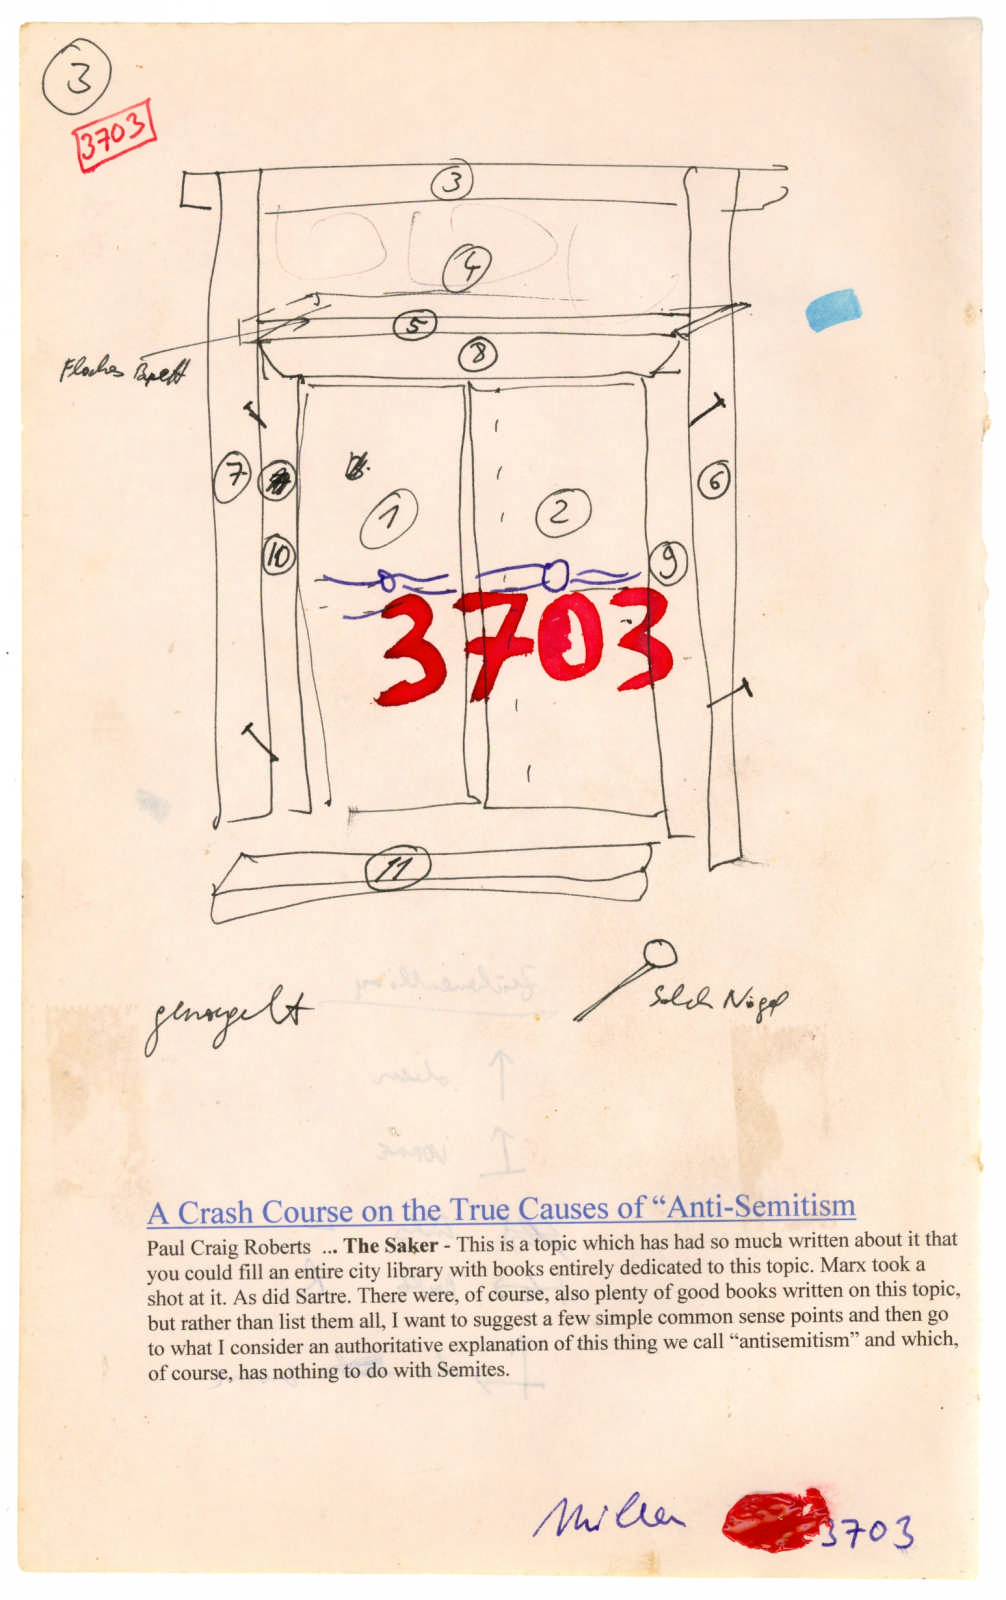 3
3703
3
4
5
8
Flaches Brett
7
6
1
2
10
9
3703
11
genagelt
Solch Nägel
A Crash Course on the True Causes of “Anti-Semitism
Paul Craig Roberts ... The Saker - This is a topic which has had so much written about it that
you could fill an entire city library with books entirely dedicated to this topic. Marx took a
shot at it. As did Sartre. There were, of course, also plenty of good books written on this topic,
but rather than list them all, I want to suggest a few simple common sense points and then go
to what I consider an authoritative explanation of this thing we call “antisemitism” and which,
of course, has nothing to do with Semites.
3703